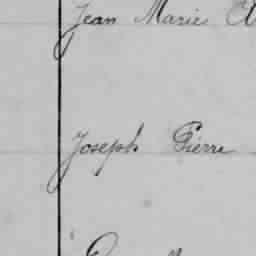 Jean Marie
Joseph Pierre